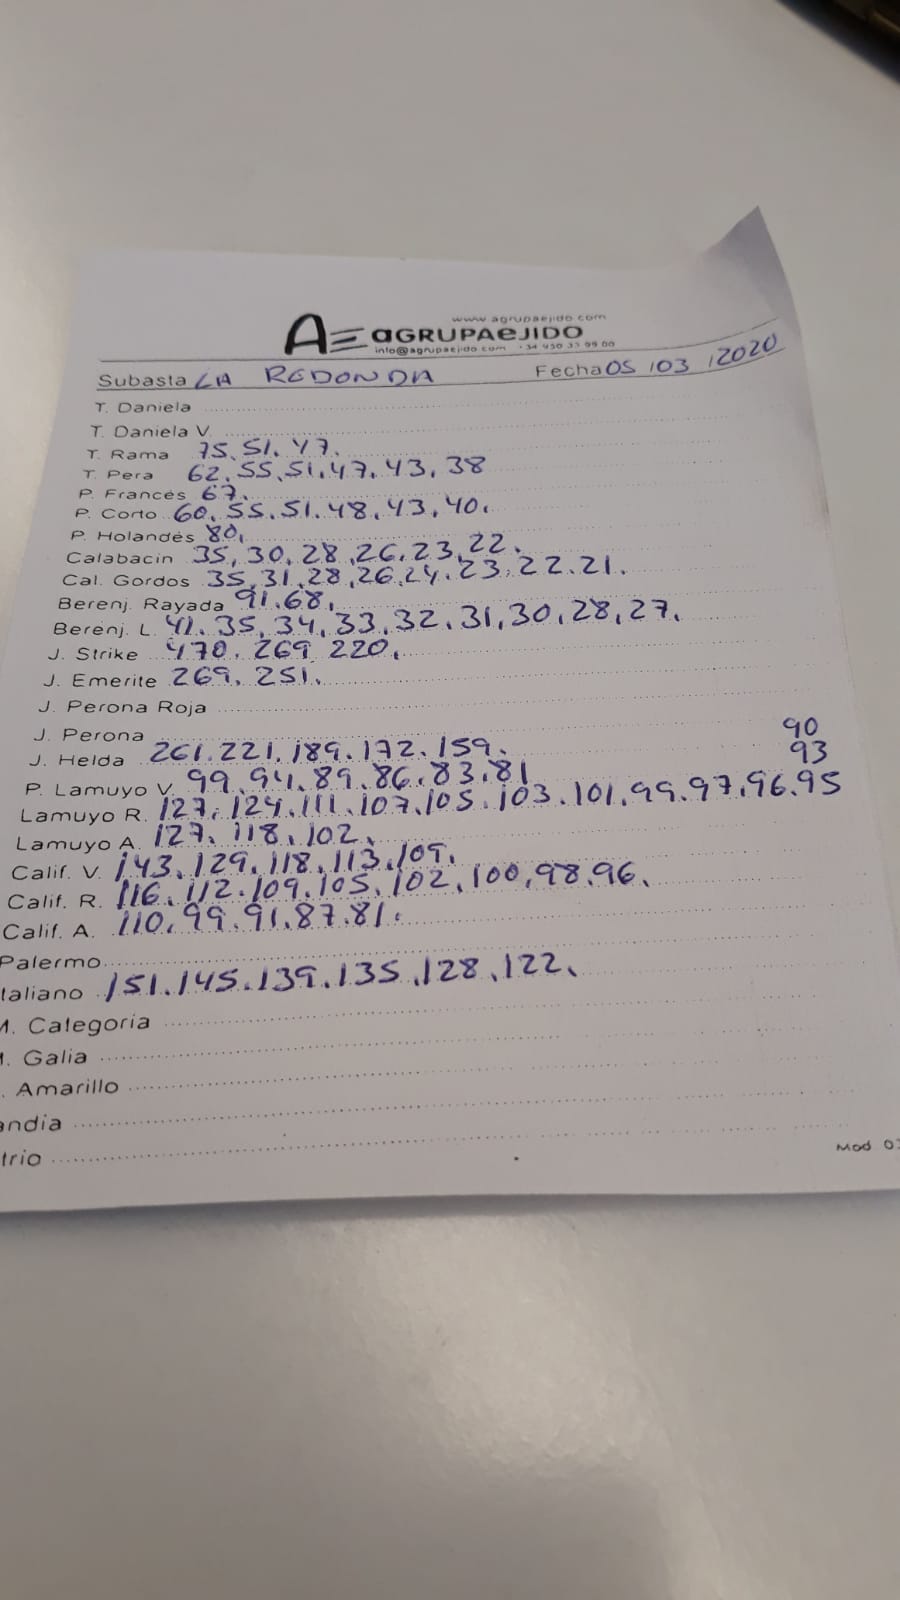 www.agrupaejido.com
AGRUPAEJIDO
info@agrupaejido.com · 34 950 33 99 00
Subasta LA REDONDA Fecha 05/03/2020
T. Daniela
T. Daniela V.
T. Rama 75.51.47.
T. Pera 62.55.51.47.43.38
P. Francés 67.
P. Corto 60.55.51.48.43.40.
P. Holandés 80.
Calabacin 35,30.28.26.23.22.
Cal. Gordos 35.31.28.26.24.23.22.21.
Berenj. Rayada 91.68.
Berenj. L. 41.35.34.33.32.31.30.28.27.
J. Strike 470.269 220.
J. Emerite 269.251.
J. Perona Roja
J. Perona
J. Helda 261.221.189.172.159.
90
93
P. Lamuyo V. 99.94.89.86.83.81
Lamuyo R. 127.124.111.107.105.103.101.99.97.96.95
Lamuyo A. 127.118.102.
Calif. V. 143.129.118.113.109.
Calif. R. 116.112.109.105.102.100.98.96.
Calif. A. 110.99.91.87.81.
Palermo
taliano 151.145.139.135.128.122.
M. Categoria
. Galia
. Amarillo
andia
trio
Mod 0